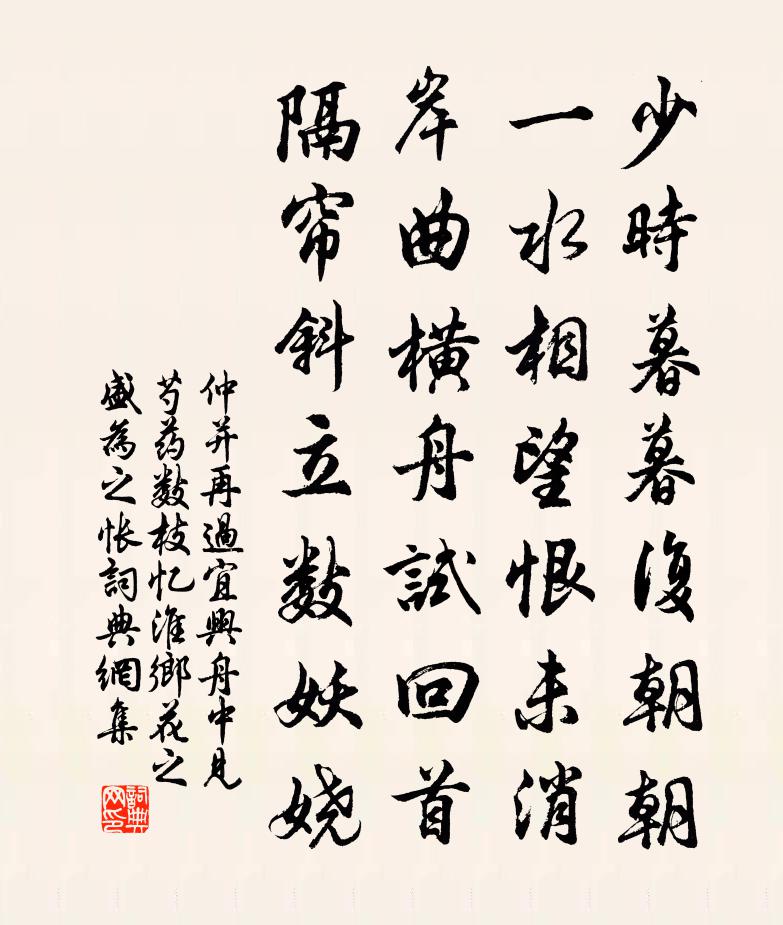 少時暮暮復朝朝
一水相望恨未消
岸曲橫舟試回首
隔帘斜立数妖娆
仲并再過宜興舟中見
芍药数枝忆淮鄉花之
盛為之怅詞典網集
詞典网印